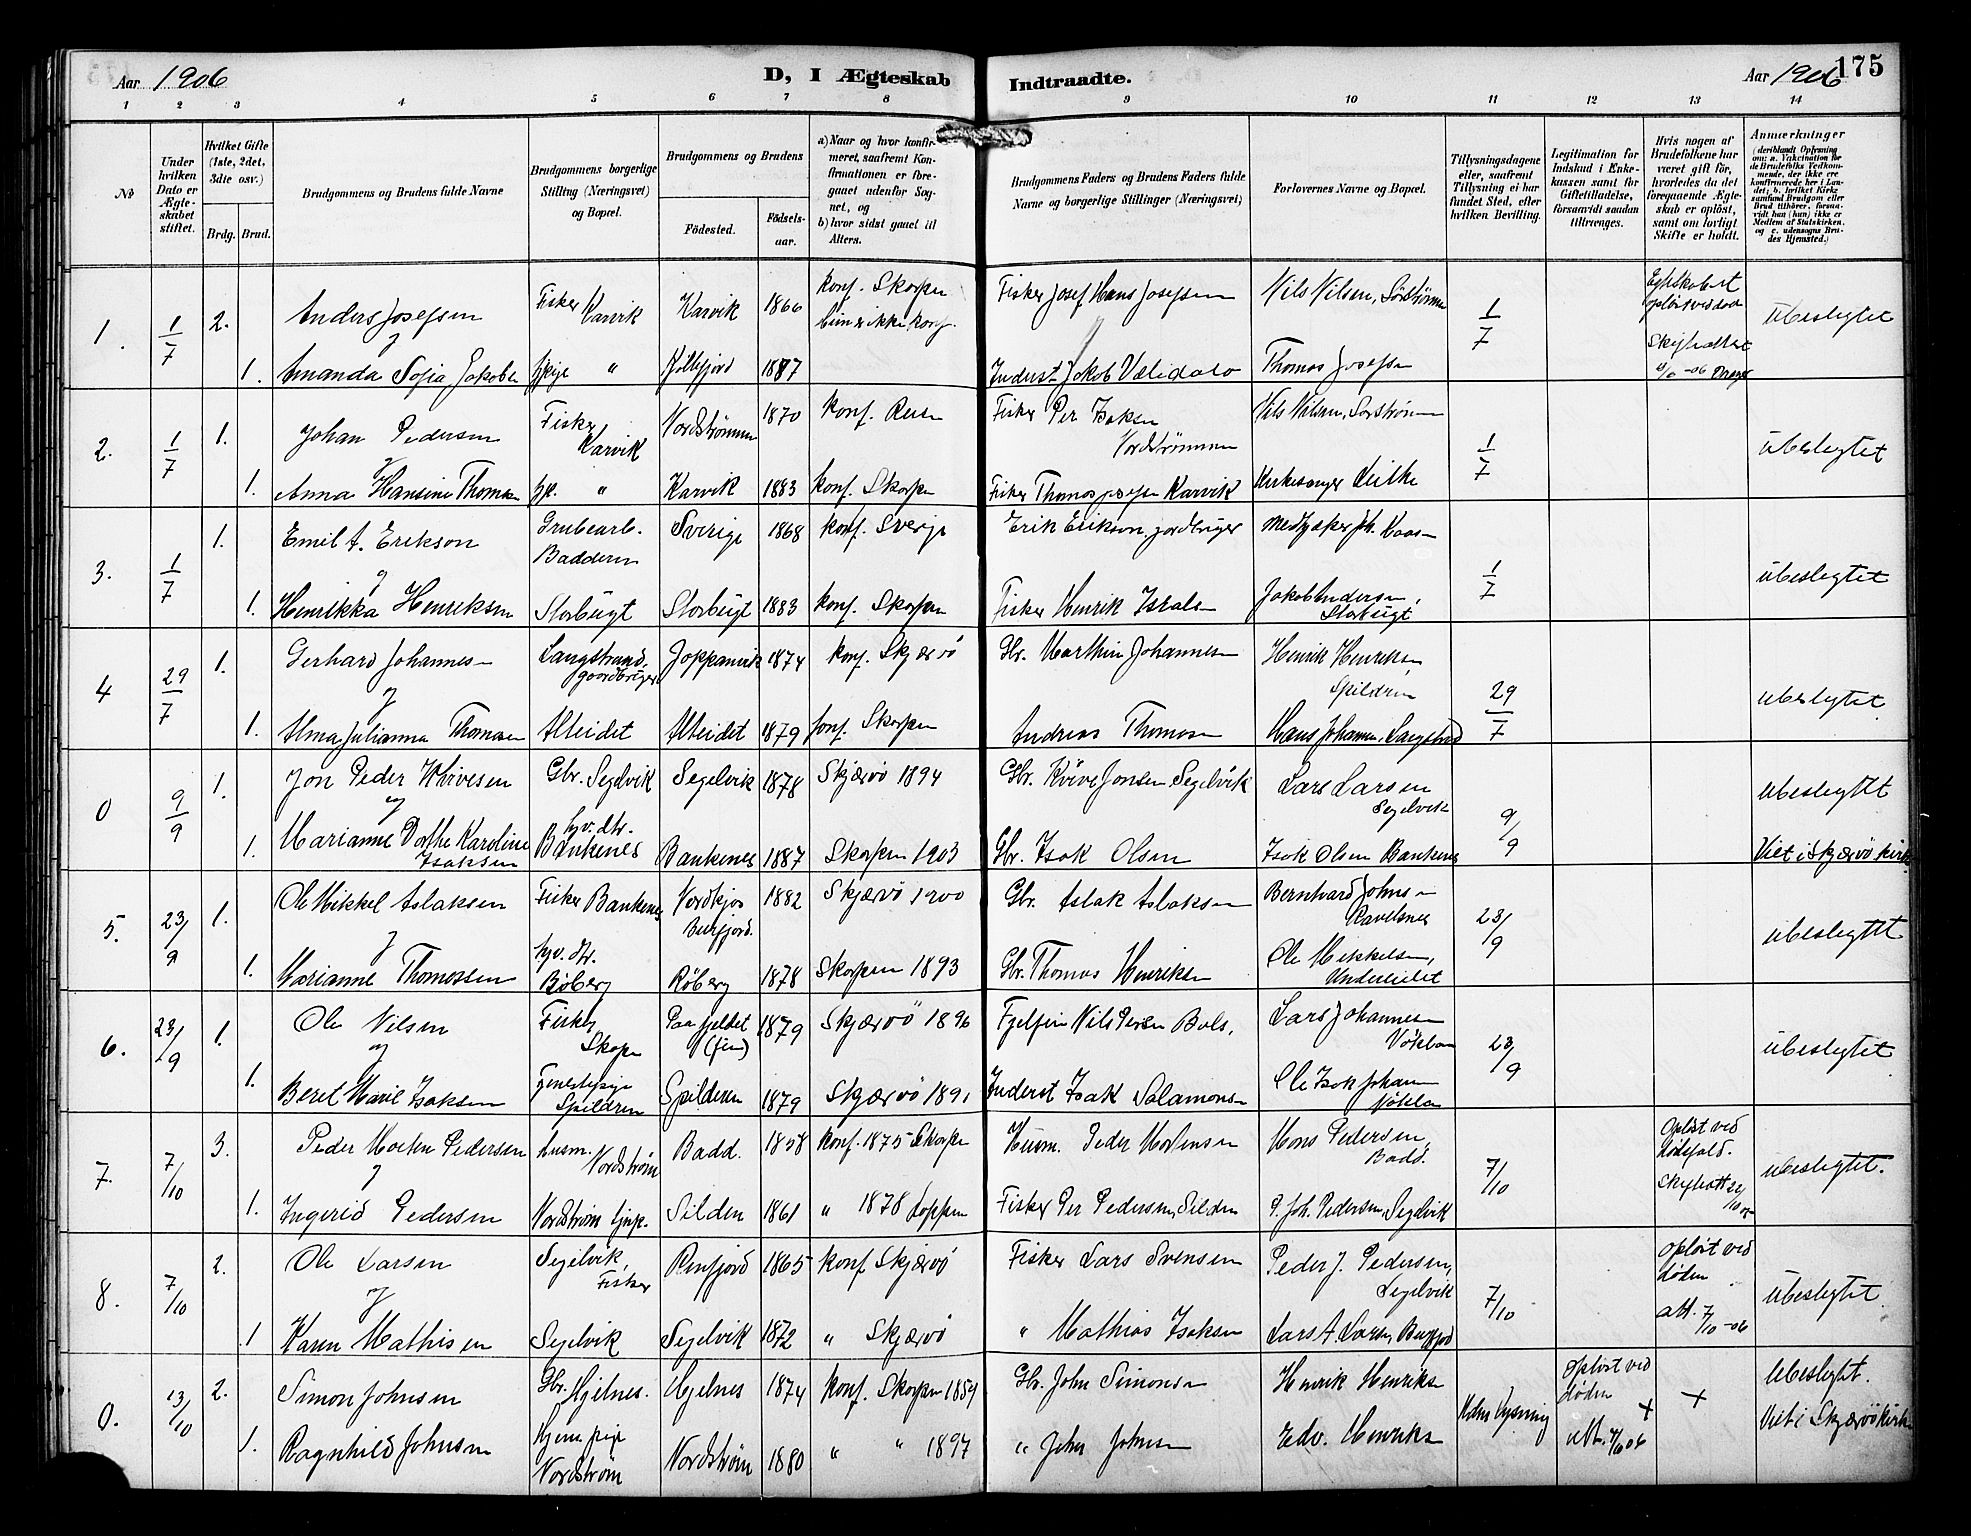 Aar 1906
D, I Ægteskab Indtraadte.
Aar 1906 175
1 2 3 4 5 6 7 8 9 10 11 12 13 14
No
Under hvilken Dato er Ægteskabet stiftet.
Hvilket Gifte (1ste, 2det, 3die osv.)
Brdg. Brud.
Brudgommens og Brudens fulde Navne
Brudgommens borgerlige Stilling (Næringsvei) og Bopæl.
Brudgommens og Brudens
Födested.
Födselsaar.
a) Naar og hvor konfirmeret, saafremt Konfirmationen er foregaaet udenfor Sognet, og
b) hvor sidst gaaet til Alters.
Brudgommens Faders og Brudens Faders fulde Navne og borgerlige Stillinger (Næringsvei)
Forlovernes Navne og Bopæl.
Tillysningsdagene eller, saafremt Tillysning ei har fundet Sted, efter hvilken Bevilling.
Legitimation for Indskud i Enkekassen samt for Giftetilladelse, forsaavidt saadan tiltrænges.
Hvis nogen af Brudefolkene har været gift för, hvorledes da det foregaaende Ægteskab er oplöst, samt om lovligt Skifte er holdt.
Anmærkninger
(deriblandt Oplysning om: a. Vakcination for de Brudefolks Vedkommende, der ikke ere konfirmerede her i Landet; b. hvilket Kirkesamfund Brudgom eller Brud tilhörer, forsaavidt han (hun) ikke er Medlem af Statskirken, og c. udensogns Brudes Hjemsted.)
1. 1/7 2. Anders Josefsen Fisker Karvik Karvik 1866 konf. Skorpen Fisker Josef Hans Josefsen Nils Nilsen, Sørstrømen 1/7 ubeslegtet
og
1. Amanda Sofia Jakobs. pige " 1887 Inderst Jakob Thomas Josefsen
2. 1/7 1. Johan Pedersen Fisker Karvik Nordstrømmen 1870 konf. Fisker Per Isaksen Nordstrømmen Nils Nilsen, Sørstrømen 1/7 ubeslegtet
og
1. Anna Hansine Thomasen " Karvik 1883 konf. Skorpen Fisker Thomas Josefsen Karvik Kirkesanger
3. 1/7 1. Emil A. Erikson Grubearb. Badderen Sverige 1868 konf. Sverje Erik Erikson, jordbruger 1/7 ubeslegtet
og
1. Henrikka Henriksen Storbugt Storbugt 1883 konf. Skorpen Fisker Henrik Isaks. Jakob Andersen, Storbugt
4 29/7 1. Gerhard Johannes. Langstrand, gaardbruger 1874 konf. Skjærvö Gbr. Marthin Johannesen Henrik Henriksen Spildren 29/7 ubeslegtet
og
1. Alma Julianna Thomasen Alteidet Alteidet 1879 konf. Skorpen Andreas Thomasn Hans Johannes. Langstrand
0 9/9 1. Jon Peder Gbr. Segelvik Segelvik 1878 Skjærvö 1894 Gbr. Jonsen Segelvik Lars Larsen Segelvik 9/9 ubeslegtet
og
1. Marianne Dorthe Karoline Isaksen Bankenes Bankenes 1887 Skorpen 1903 Gbr. Isak Olsen Isak Olsen Bankenes Viet i Skjærvö kirke
5. 23/9 1. Ole Mikkel Aslaksen Fisker Bankenes Burfjord. 1882 Skjærvö 1900 Gbr. Aslak Aslaksen Bernhard Johns. 23/9 ubeslegtet
og
1. Marianne Thomassen Røberg Røberg 1878 Skorpen 1893 Gbr. Thomas Henriksen Ole Mikkelsen, Undereidet
6. 23/9 1. Ole Nilsen Fisker Skorpa Paa fjeldet (fin) 1879 Skjærvö 1896 Nils Persen Lars Johannesen 23/9 ubeslegtet
og
1. Beret Marie Isaksen Spildren Spilderen 1879 Skjærvö 1891 Inderst Isak Salamons. Ole Isak Johans.
7. 7/10 3. Peder Morten Pedersen husm. Nordstrøm Badd. 1858 konf. 1875 Skorpen Husm. Peder Mortensen Mons Pedersen, Badd. 7/10 Opløst ved dødsfald. ubeslegtet.
og
1. Ingerid Pedersen Nordstrøm Silden 1861 " 1878 Loppen Fisker Per Pedersen, Silden P. Joh. Pedersen, Segelvik
8. 7/10 2. Ole Larsen Segelvik, Fisker 1865 konf Skjærvö Fisker Lars Svensen Peder J. Pedersen, Segelvik 7/10 opløst ved døden att. 7/10-06 ubeslegtet
og
1 Karen Mathisen Segelvik Segelvik 1872 " Skjærvö " Mathias Isaksen Lars A. Larsen Burfjord
0. 13/10 2. Simon Johnsen Gbr. Hjelnes. Hjelnes 1874 konf. Skorpen Gbr. John Simonsen Henrik Henriks. Uden lysning opløst ved døden + + Ubeslegt.
1. Ragnhild Johnsen Nordstrøm Nordstrøm 1880 " " 1897 " John Johnsen Edv. Henriks. Viet i Skjærvö kirke